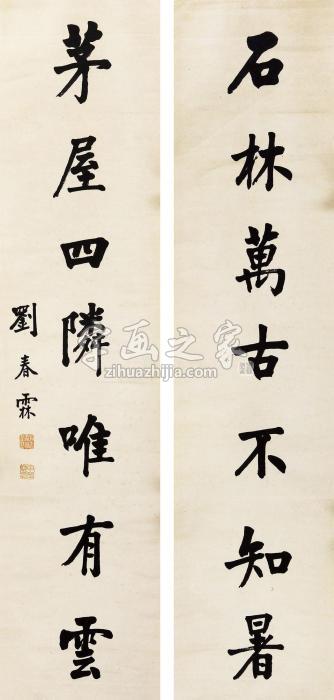 石林萬古不知暑
茅屋四隣唯有雲
劉春霖
字画之家
zihuazhijia.com